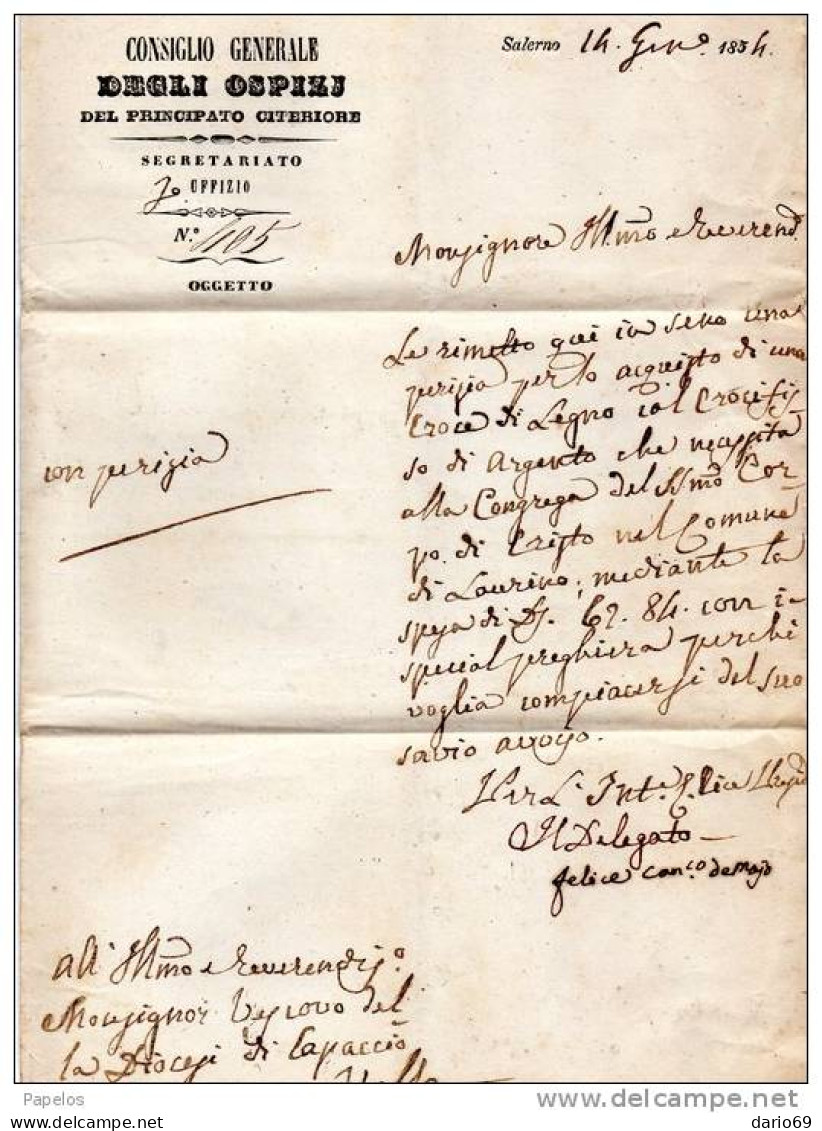 CONSIGLIO GENERALE
DEGLI OSPIZJ
DEL PRINCIPATO CITERIORE
SEGRETARIATO
UFFIZIO
N.º 1105
OGGETTO
Salerno 14. Gen.º 1854.
Monsignore Ill.mo e Reverend
Le rimetto qui in seno una
perizia per lo acquisto di una
Croce di Legno col Crocifis-
so di Argento che necessita
alla Congrega del SSmo Cor-
po di Cristo nel Comune
di Laurino, mediante la
spesa di D. 62. 84. con i-
special preghiera perchè
voglia compiacersi del suo
savio avviso.
con perizia
Per L' Int.e
Il Delegato
Felice Can.co de Majo
All' Illmo e Reverendis.º
Monsignor Vescovo del-
la Diocesi di Capaccio
Papelos
delcampe.net
dario69